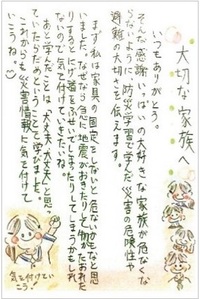 大切な家族へ
いつもありがとう。
そんな感謝いっぱいの大好きな家族が危なくな
らないように防災学習で学んだ災害の危険性や
避難の大切さを伝えます。
まず私は家具の固定をしないと危ないかもなと思
いました。なぜなら急に地震がおきたりして物がたおれた
りするとけがに
ないので気を付けていきたいね。
あと学んだことは「大丈夫、大丈夫」と思っ
ていたらだめということを学びました。
これからも災害情報に気を付けて
いこうね。
気を付けてい
こう!